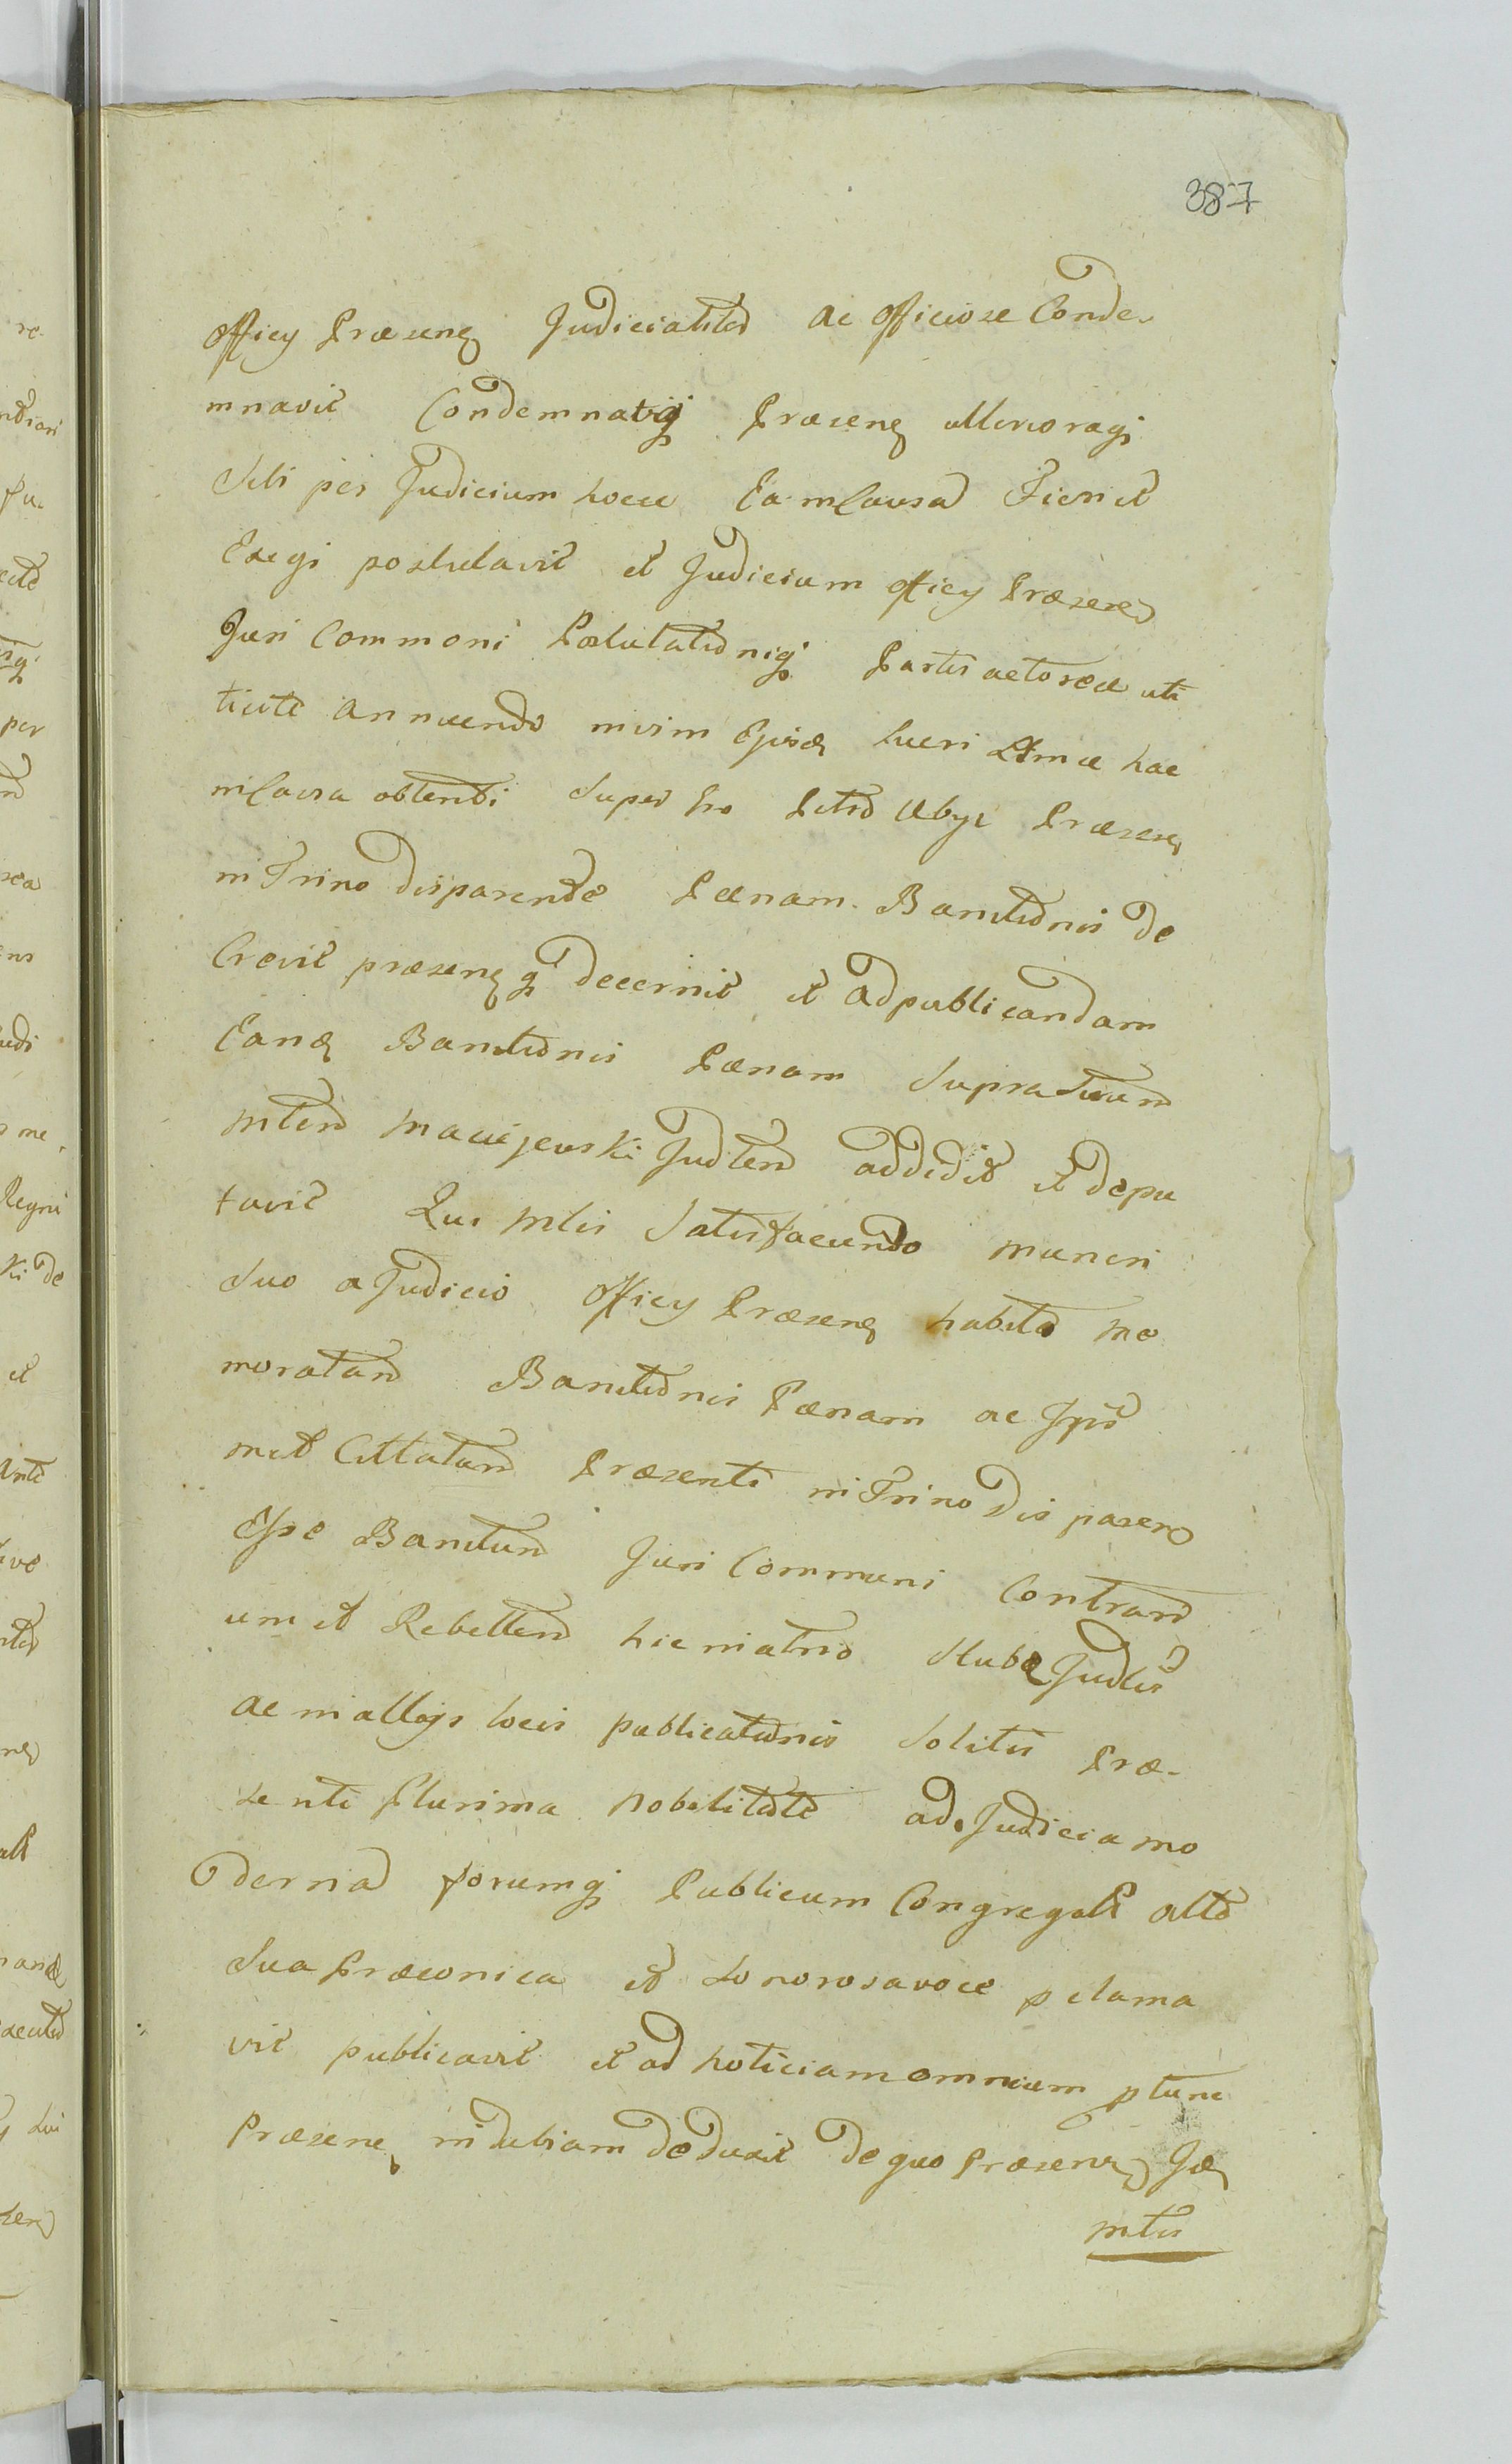 387
Officy Præsenę Judicialiter ac Officiose Conde-
mnavit Condemnatoq; Præsenę ulterioraq;
Sibi per Judicium hocce Ea in Causa Fieri et
Exegi postulavit et Judicium Officy Præsens
Juri Commoni Postulationiq; Partis actoreæ uti
ticite annuendo in vim Ejusdę lucri hac
in Causa obtenti Super non Præsenę
in Trino disparente Pænam Banitionis de
Crevit præsenęq; decernit et ad publicandam
Eandę Banitionis Pænam Supra Scriptum
Mlem Maciejewski Judlem addidit et depu
tavit Qui Mlis Satisfaciendo muneri
Suo a Judicio Officy Præsenę habito me
moratam Banitionis Pænam ac Ipsū
met Cittatum Præsenti in Trino dis parem
Esse Banitum Juri Communi Contrari
um et Rebellem hic in atrio Stubæ Judlis
ac in allys locis publicationis Solitis Præ-
senti Plurima Nobilitate ad Judicia mo
derna forumq; Publicum Congregata alta
Sua Præconica et Sonorosa voce pclama
vit publicavit et ad Noticiam omnium ptunc
Præsenę indubiam deduxit de quo Præsens
mtis